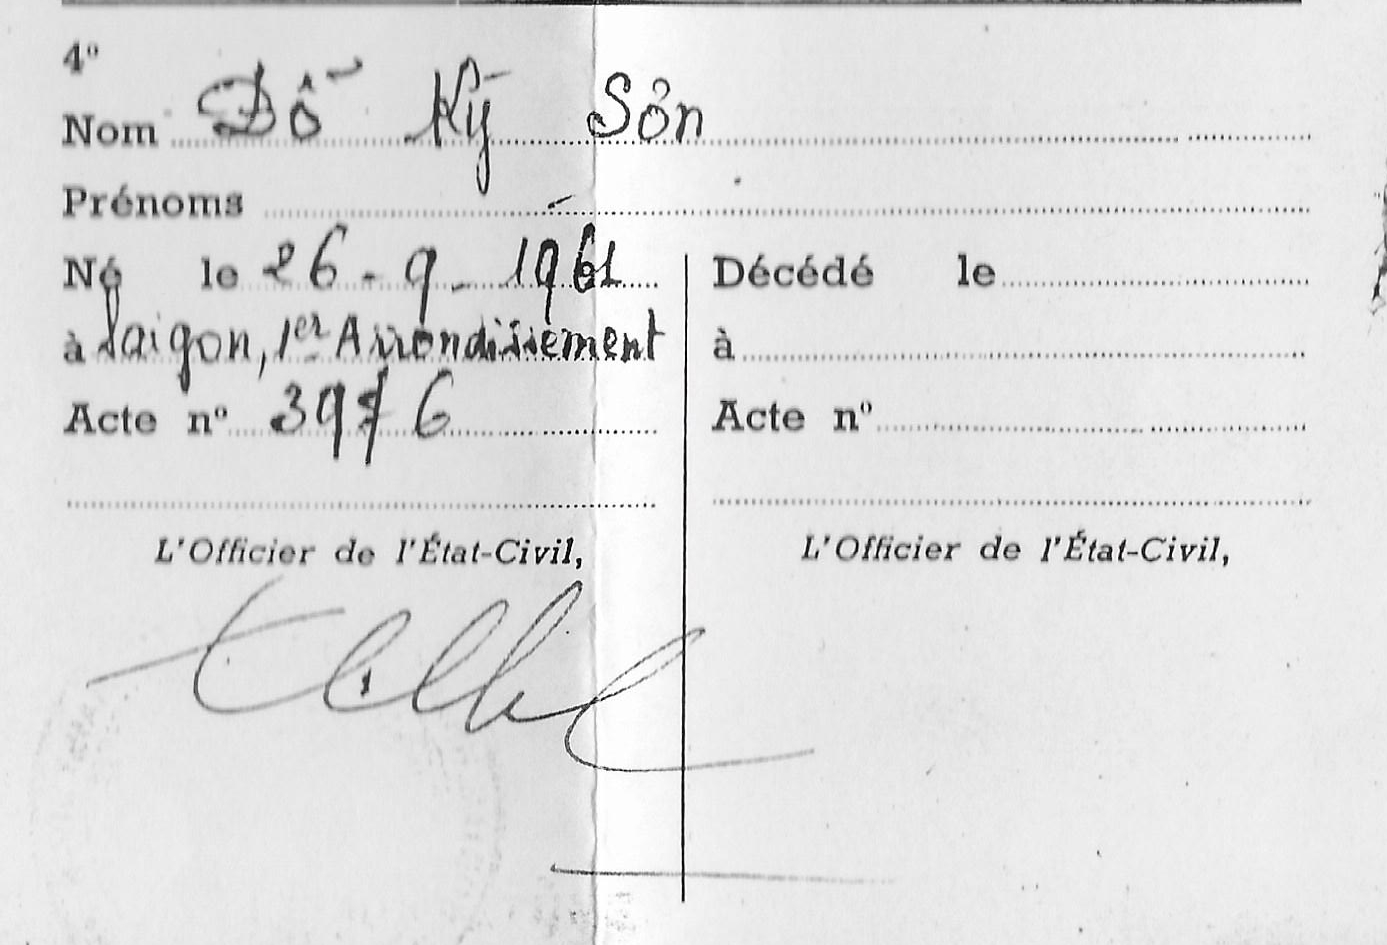 4º
Nom Đỗ Kỳ Sơn
Prénoms
Né le 26-9-1961
à Saigon, 1er Arrondissement
Acte nº 3976
L'Officier de l'État-Civil,
Décédé le
à
Acte nº
L'Officier de l'État-Civil,